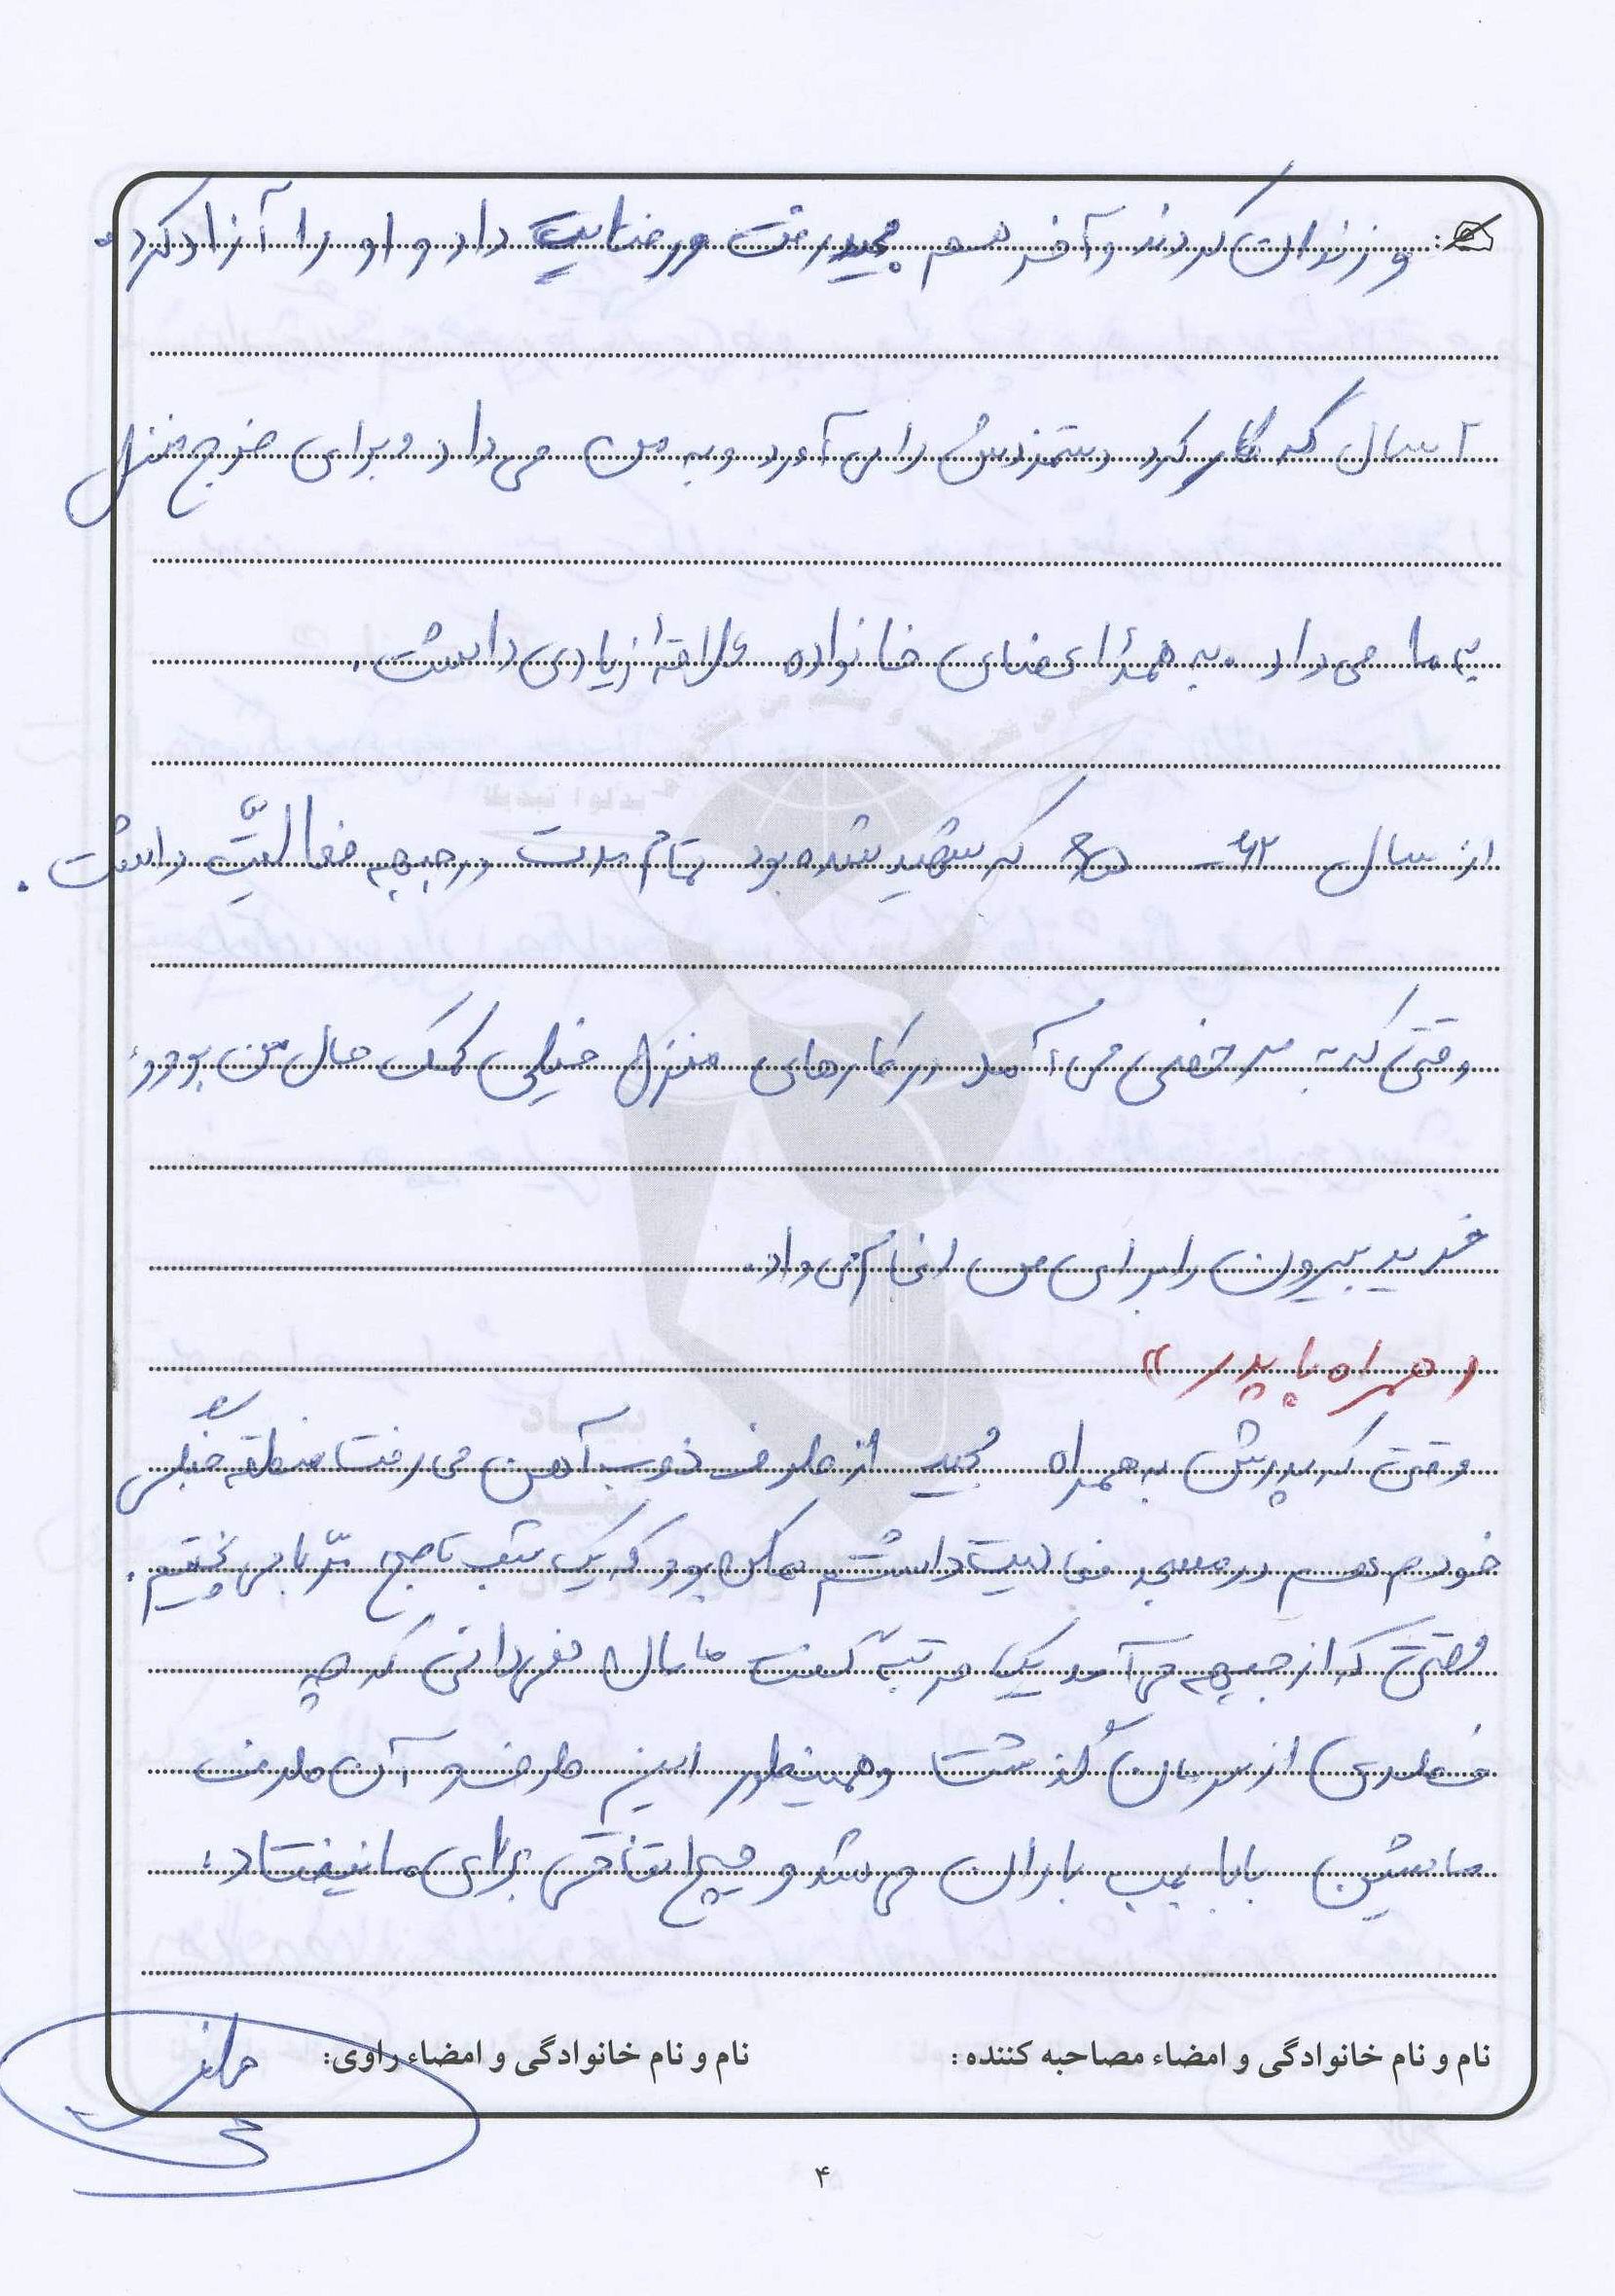 و زندان کردند و آخر هم مجید رفت و رضایت داد و او را آزاد کرد.
سال که کار کرد دستمزدش را می آورد و به من می داد و برای خرج منزل
به ما می داد. به همهٔ اعضای خانواده علاقهٔ زیادی داشت.
از سال ۶۲ - که شهید شده بود تمام مدت در جبهه فعالیّت داشت.
وقتی که به مرخصی می آمد در کارهای منزل خیلی کمک حال من بود و
خرید بیرون را برای من انجام می داد.
«همراه با پدر»
وقتی که پدرش به همراه مجید از طرف ذوب آهن می رفت منطقه جنگی
خودم هم در مسجد فعالیت داشتم ممکن بود که یک شب تا صبح مربّا می پختیم.
وقتی که از جبهه می آمد یک مرتبه گفت مامان نمی دانی که چه
خطری از سرمان گذشت و همینطور این طرف و آن طرف
ماشین بابا بمب باران می شد و هیچ اتفاقی برای ما نیفتاد.
نام و نام خانوادگی و امضاء مصاحبه کننده: نام و نام خانوادگی و امضاء راوی:
۴